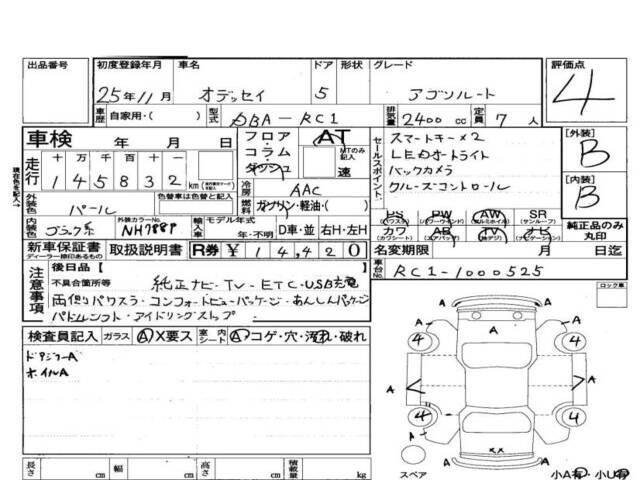 出品番号 初度登録年月 車名 ドア 形状 グレード 評価点
25年11月 オデッセイ 5 アブソルート 4
車歴 自家用・( ) 型式 DBA-RC1 排気量 2400 cc 定員 7 人
車検 年 月 日 フロア・コラム・ダッシュ AT MTのみ記入 速
セールスポイント スマートキー×2
LEDオートライト
バックカメラ
クルーズコントロール
[外装] B
[内装] B
現在色を記入→
走行 十 万 千 百 十 一
145832 km
冷房 AAC
外装色 パール 色替車は色替と記入 燃料 ガソリン・軽油・( )
内装色 ブラック系 外装カラーNo. NH788P 輸入車 モデル年式 年・不明 D車・並 右H・左H
PS (パワステ) PW (パワーウインド) AW (アルミホイル) SR (サンルーフ)
カワ (カワシート) AB (エアバッグ) TV (地デジ) ナビ (ナビゲーション)
純正品のみ丸印
新車保証書 ディーラー捺印あるもの 取扱説明書 R券 ¥14,420
名変期限 月 日迄
車台No. RC1-1000525
注意事項 後日品[ ]
不具合箇所等 純正ナビ・TV・ETC・USB充電
両側パワスラ・コンフォートビューパッケージ・あんしんパッケージ
パドルシフト・アイドリングストップ
ロック車
検査員記入 ガラス A X要ス 室内 A・コゲ・穴・汚れ・破れ
ドアミラーA
ホイルA
A
4 4
A A A A
4 4
A A
XX
スペア
小A有・小U有
長さ cm 幅 cm 高さ cm 積載量 kg